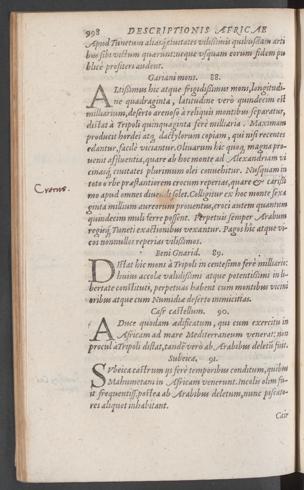 998 DESCRIPTIONIS AFRICAE
Apud Tunetum aliasq́; ciuitates vilissimis quibusdam arti
bus sibi victum quærunt: neque vsquam eorum fidem pu
blicè profiteri audent.
Gariani mons. 88.
ALtissimus hic atque frigidissimus mons, longitudi-
ne quadraginta, latitudine verò quindecim est
milliarium, deserto arenoso à reliquis montibus separatus,
distat à Tripoli quinquaginta ferè milliaria. Maximam
producit hordei atq́; dactylorum copiam, qui nisi recentes
edantur, facilè vitiantur. Oliuarum hic quoq́; magna pro-
uenit affluentia, quare ab hoc monte ad Alexandriam vi
cinasq́; ciuitates plurimum olei conuehitur. Nusquam in
toto orbe præstantiorem crocum reperias, quare & carissi
mo apud omnes diuenditur. Colligitur ex hoc monte sexa
ginta millium aureorum prouentus, croci autem quantum
quindecim muli ferre possent. Perpetuis semper Arabum
regisq́; Tuneti exactionibus vexantur. Pagos hic atque vi-
cos nonnullos reperias vilissimos.
Croeus.
Beni Guarid. 89.
DIstat hic mons à Tripoli in centesimo ferè milliario:
huius accolæ validissimi atque potentissimi in li-
bertate constituti, perpetuas habent cum montibus vicini
oribus atque cum Numidiæ deserto inimicitias.
Casr castellum. 90.
A Duce quodam ædificatum, qui cum exercitu in
Africam ad mare Mediterraneum venerat: non
procul à Tripoli distat, tandē verò ab Arabibus deleti fuit.
Subeica. 91.
SVbeica castrum ijs ferè temporibus conditum, quibus
Mahumetani in Africam venerunt. Incolis olim fu-
it frequentiss. postea ab Arabibus deletum, nunc piscato-
res aliquot inhabitant.
Casr